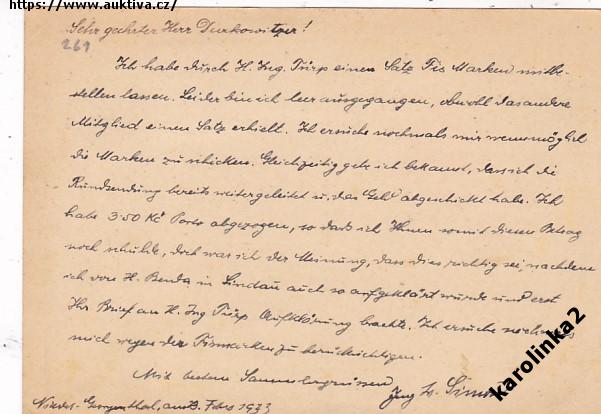 https://www.auktiva.cz/
Sehr geehrter Herr Durkowitzer!
269
Ich habe durch H. Ing. Türp einen Satz Fis Marken mitbe-
stellen lassen. Leider bin ich leer ausgegangen, obwohl das andere
Mitglied einen Satz erhielt. Ich ersuche nochmals mir wennmöglich
die Marken zu schicken. Gleichzeitig gebe ich bekannt, dass ich die
Rundsendung bereits weitergeleitet u. das Geld abgeschickt habe. Ich
habe 3.50 Kč Porto abgezogen, so dass ich Ihnen somit diesen Betrag
noch schulde, doch war ich der Meinung, dass dies richtig sei, nachdem
ich von H. Benda in Lindau auch so aufgeklärt wurde und erst
Ihr Brief an H. Ing Türp Aufklärung brachte. Ich ersuche nochmals
mich wegen der Fismarken zu berücksichtigen.
Mit besten Sammlergrüssen
Ing
Georgenthal, am Feber 1933
karolinka2